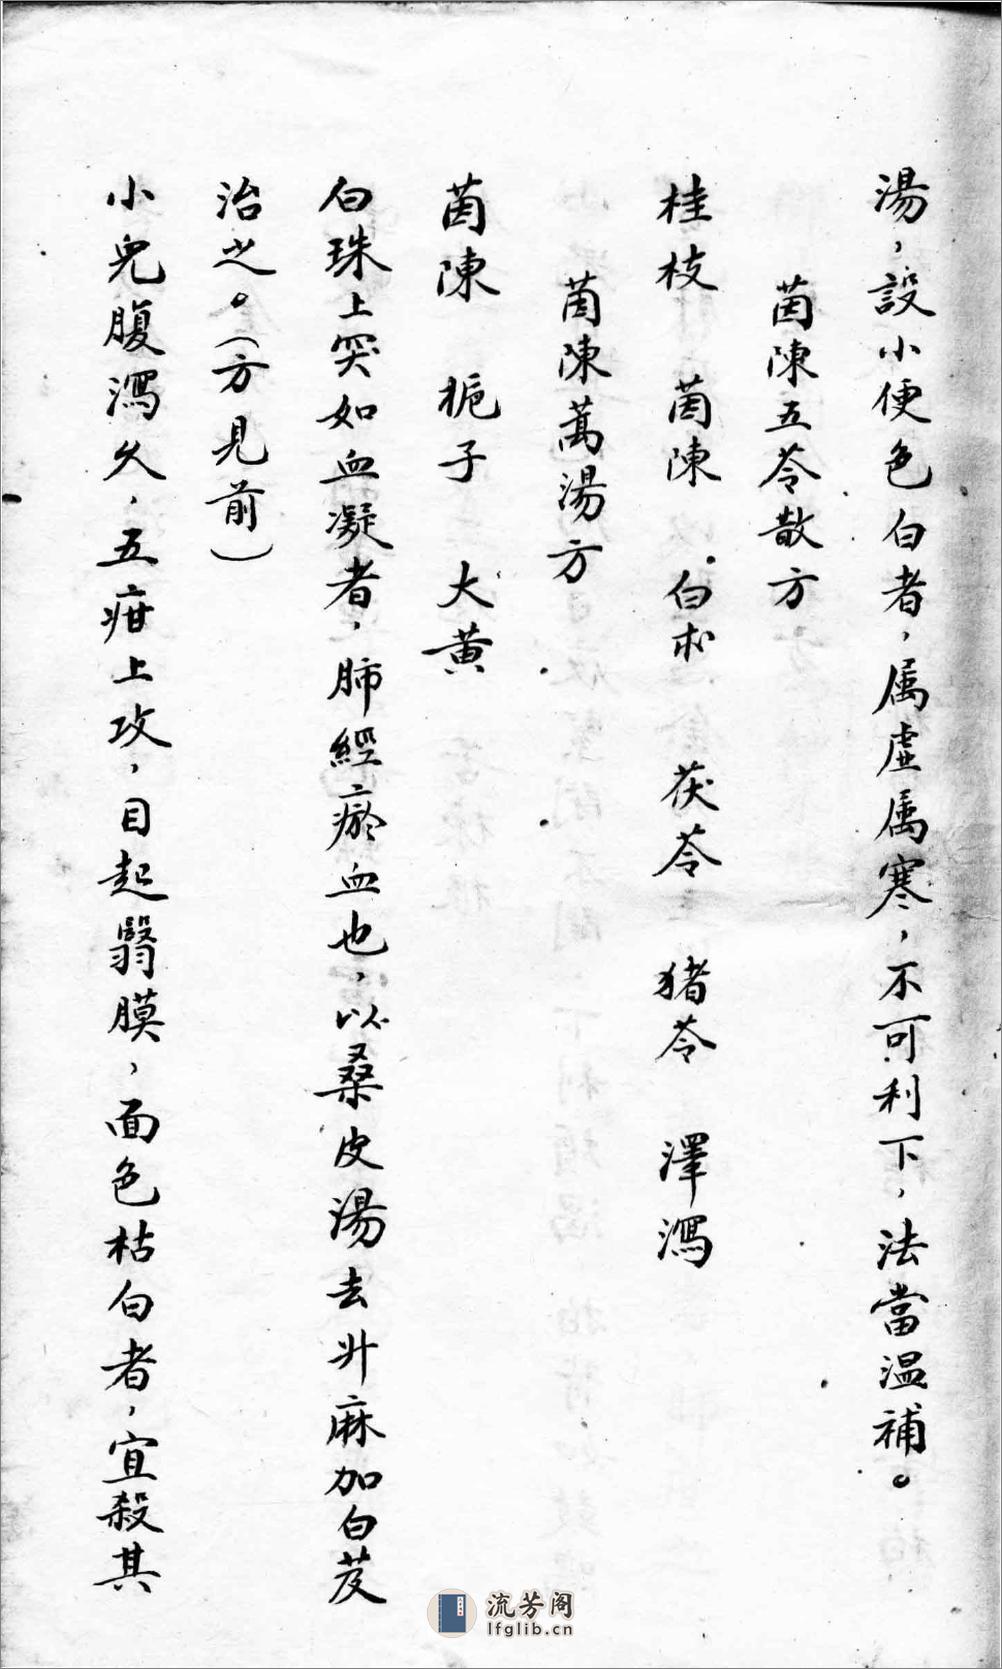 湯，設小便色白者，属虚属寒，不可利下，法當温補。
茵陳五苓散方
桂枝　茵陳　白朮　茯苓　猪苓　澤瀉
茵陳蒿湯方
茵陳　梔子　大黄
白珠上突如血凝者，肺經瘀血也，以桑皮湯去升麻加白芨
治之。（方見前）
小兒腹瀉久，五疳上攻，目起翳膜，面色枯白者，宜殺其
流芳阁
lfglib.cn